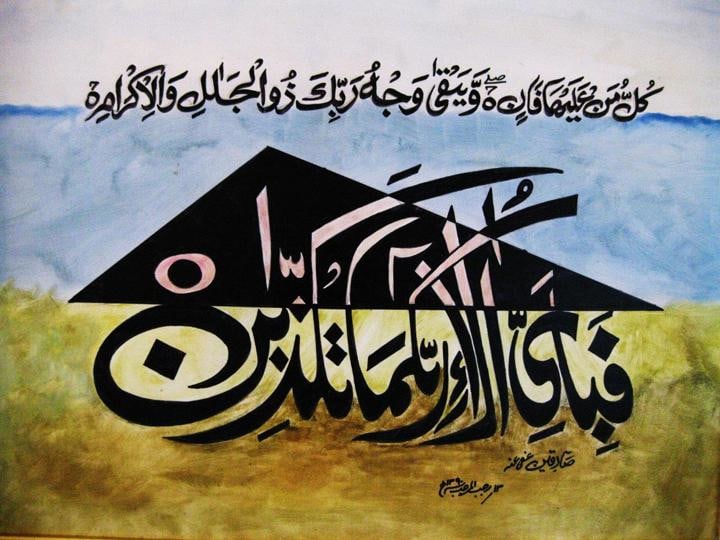 كُلُّ مَنْ عَلَيْهَا فَانٍ ۖ وَّيَبْقٰى وَجْهُ رَبِّكَ ذُو الْجَلٰلِ وَالْاِكْرَامِ
فَبِاَيِّ اٰلَاۤءِ رَبِّكُمَا تُكَذِّبٰنِ
صادقين عفى عنه